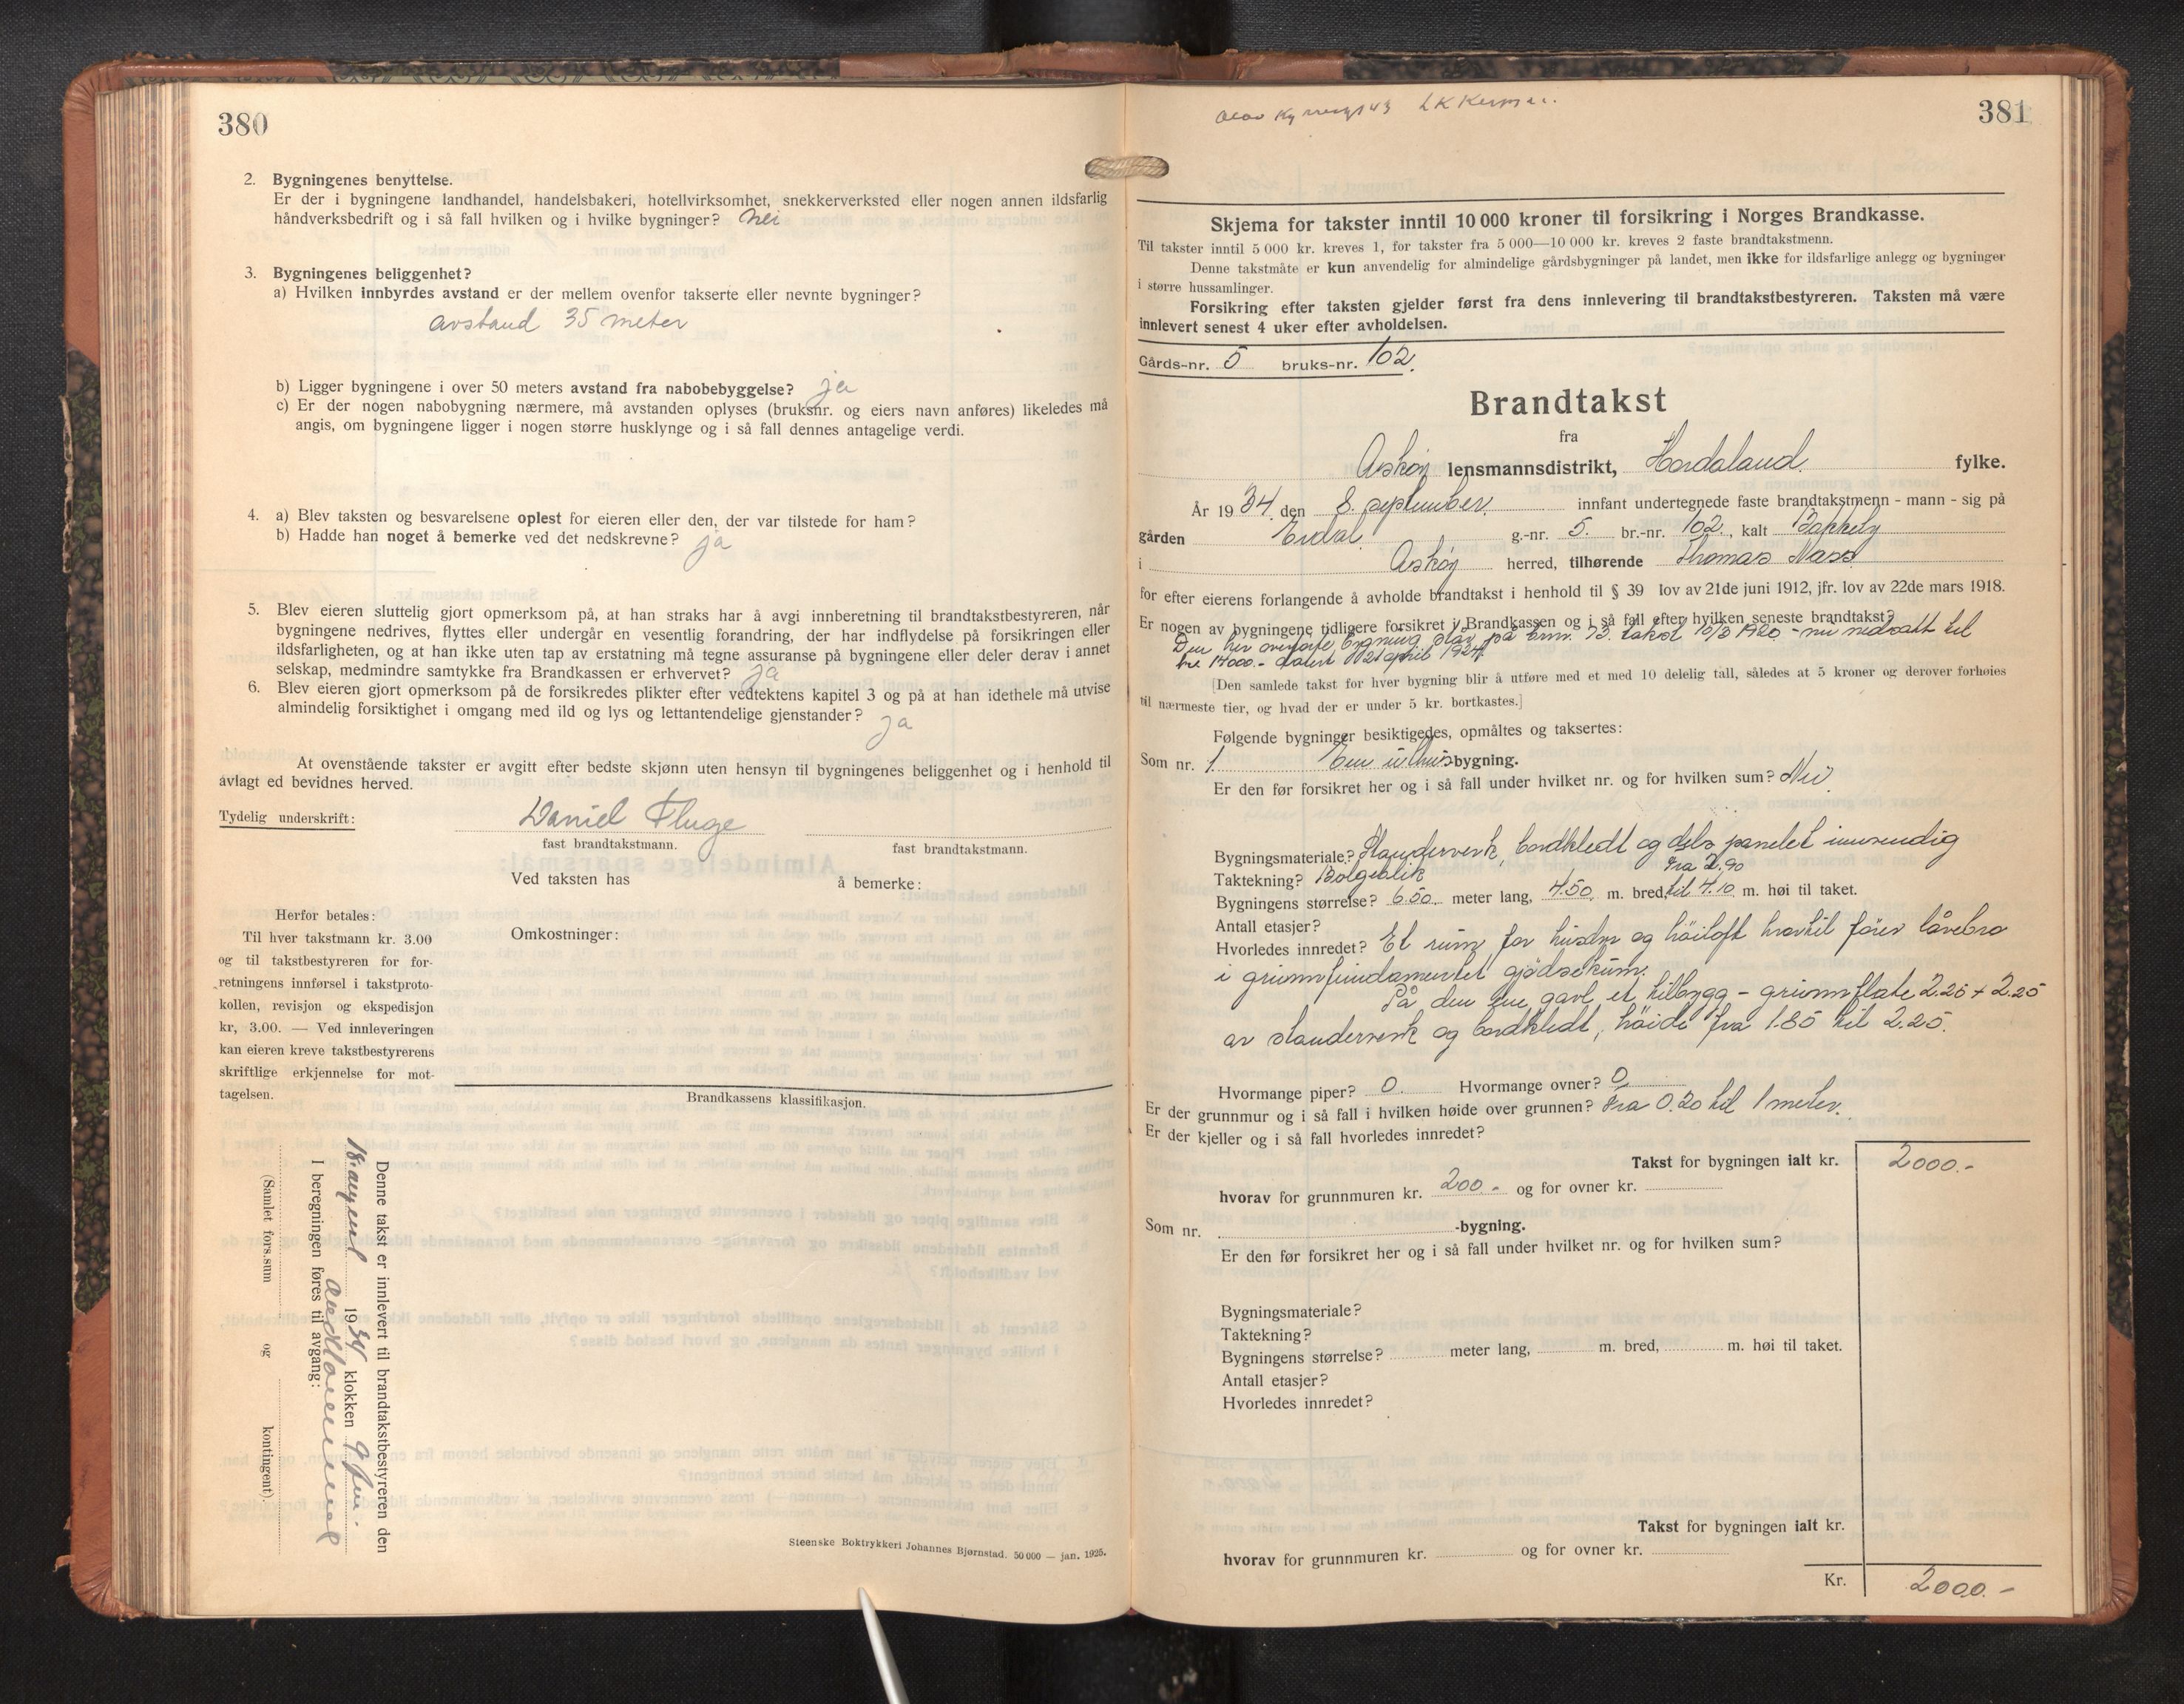 380
2. Bygningenes benyttelse.
Er der i bygningene landhandel, handelsbakeri, hotellvirksomhet, snekkerverksted eller nogen annen ildsfarlig
håndverksbedrift og i så fall hvilken og i hvilke bygninger? Nei
3. Bygningenes beliggenhet?
a) Hvilken innbyrdes avstand er der mellem ovenfor takserte eller nevnte bygninger?
avstand 35 meter
b) Ligger bygningene i over 50 meters avstand fra nabobebyggelse? ja
c) Er der nogen nabobygning nærmere, må avstanden oplyses (bruksnr. og eiers navn anføres) likeledes må
angis, om bygningene ligger i nogen større husklynge og i så fall dennes antagelige verdi.
4. a) Blev taksten og besvarelsene oplest for eieren eller den, der var tilstede for ham?
b) Hadde han noget å bemerke ved det nedskrevne? ja
5. Blev eieren sluttelig gjort opmerksom på, at han straks har å avgi innberetning til brandtakstbestyreren, når
bygningene nedrives, flyttes eller undergår en vesentlig forandring, der har indflydelse på forsikringen eller
ildsfarligheten, og at han ikke uten tap av erstatning må tegne assuranse på bygningene eller deler derav i annet
selskap, medmindre samtykke fra Brandkassen er erhvervet? ja
6. Blev eieren gjort opmerksom på de forsikredes plikter efter vedtektens kapitel 3 og på at han idethele må utvise
almindelig forsiktighet i omgang med ild og lys og lettantendelige gjenstander? ja
At ovenstående takster er avgitt efter bedste skjønn uten hensyn til bygningenes beliggenhet og i henhold til
avlagt ed bevidnes herved.
Tydelig underskrift: Daniel Fluge
fast brandtakstmann. fast brandtakstmann.
Ved taksten has å bemerke:
Herfor betales:
Til hver takstmann kr. 3.00
og til takstbestyreren for for-
retningens innførsel i takstproto-
kollen, revisjon og ekspedisjon
kr, 3.00. — Ved innleveringen
kan eieren kreve takstbestyrerens
skriftlige erkjennelse for mot-
tagelsen.
Omkostninger:
Brandkassens klassifikasjon.
Denne takst er innlevert til brandtakstbestyreren den
18. 1934 klokken 9
I beregningen føres til avgang:
(Samlet fors.sum og kontingent)
Steenske Boktrykkeri Johannes Bjørnstad. 50 000 — jan. 1925.
381
Skjema for takster inntil 10 000 kroner til forsikring i Norges Brandkasse.
Til takster inntil 5 000 kr. kreves 1, for takster fra 5 000—10 000 kr. kreves 2 faste brandtakstmenn.
Denne takstmåte er kun anvendelig for almindelige gårdsbygninger på landet, men ikke for ildsfarlige anlegg og bygninger
i større hussamlinger.
Forsikring efter taksten gjelder først fra dens innlevering til brandtakstbestyreren. Taksten må være
innlevert senest 4 uker efter avholdelsen.
Gårds-nr. 5 bruks-nr. 102.
Brandtakst
fra
Askøy lensmannsdistrikt, Hordaland fylke.
År 1934. den 8. september. innfant undertegnede faste brandtakstmenn - mann - sig på
gården Erdal. g.-nr. 5. br.-nr. 102., kalt Bakkely
i Askøy herred, tilhørende Thomas Næss
for efter eierens forlangende å avholde brandtakst i henhold til § 39 lov av 21de juni 1912, jfr. lov av 22de mars 1918.
Er nogen av bygningene tidligere forsikret i Brandkassen og i så fall efter hvilken seneste brandtakst?
Den her bygning står på brnr. 73. takst 10/3 1920 - nu nedsatt til
kr. 14000.- datert 21 april 1924
[Den samlede takst for hver bygning blir å utføre med et med 10 delelig tall, således at 5 kroner og derover forhøies
til nærmeste tier, og hvad der er under 5 kr. bortkastes.]
Følgende bygninger besiktigedes, opmåltes og taksertes:
Som nr. 1. En uthus-bygning.
Er den før forsikret her og i så fall under hvilket nr. og for hvilken sum? Nei.
Bygningsmateriale? Standerverk, bordkledt og dels panelet innvendig
Taktekning? Bølgeblik fra 2.90
Bygningens størrelse? 6.50. meter lang, 4.50. m. bred, til 4.10 m. høi til taket.
Antall etasjer?
Hvorledes innredet? Et rum for husdyr og höiloft hvortil förer låvebro
i grunnfundamentet gjödselkum.
På den ene gavl et tilbygg - grunnflate 2.25 + 2.25
av standerverk og bordkledt, höide fra 1.85 til 2.25.
Hvormange piper? 0. Hvormange ovner? 0
Er der grunnmur og i så fall i hvilken høide over grunnen? Fra 0.20 til 1 meter.
Er der kjeller og i så fall hvorledes innredet?
Takst for bygningen ialt kr. 2000.-
hvorav for grunnmuren kr. 200.- og for ovner kr.
Som nr. -bygning.
Er den før forsikret her og i så fall under hvilket nr. og for hvilken sum?
Bygningsmateriale?
Taktekning?
Bygningens størrelse? meter lang, m. bred, m. høi til taket.
Antall etasjer?
Hvorledes innredet?
Takst for bygningen ialt kr.
hvorav for grunnmuren kr. og for ovner kr.
Kr. 2000.-